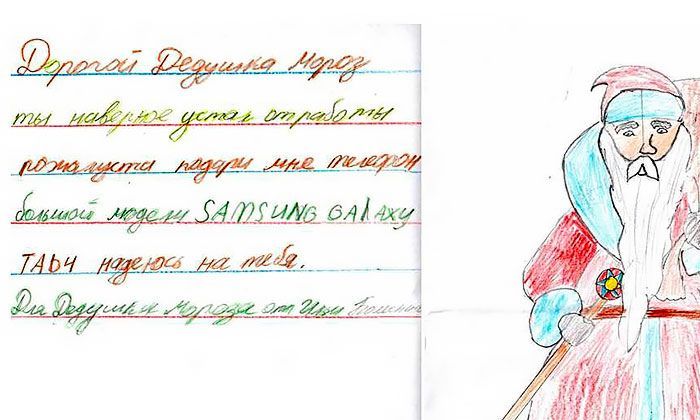 Дорогой Дедушка Мороз
ты наверное устал от работы
пожалуста подари мне телефон
большой модели SAMSUNG GALAXY
TAB4 надеюсь на тебя.
Для Дедушки Мороза от Ильи